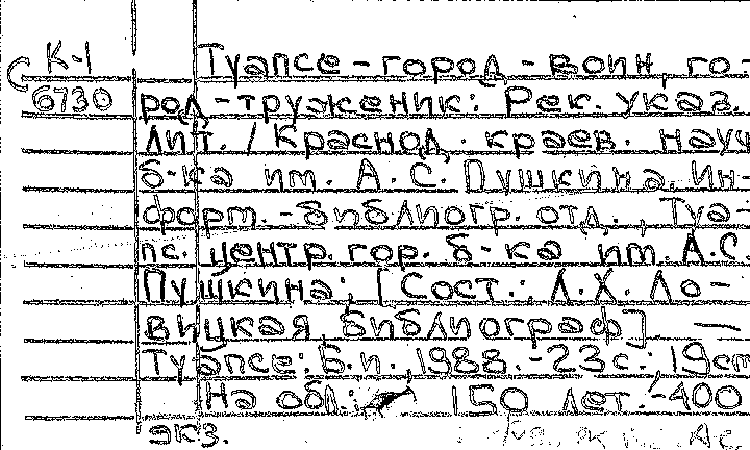 К-1 Туапсе-город-воин, го-
6730 род-труженик: Рек. указ.
лит. / Краснод. краев. науч
б-ка им. А.С. Пушкина, Ин-
форм.-библиогр. отд., Туа-
пс. центр. гор. б-ка им. А.С.
Пушкина; [Сост.: Л.Х. Ло-
вицкая, библиограф]. —
Туапсе: Б.и., 1988.-23с.: 19см
На обл.: 150 лет.-400
экз.